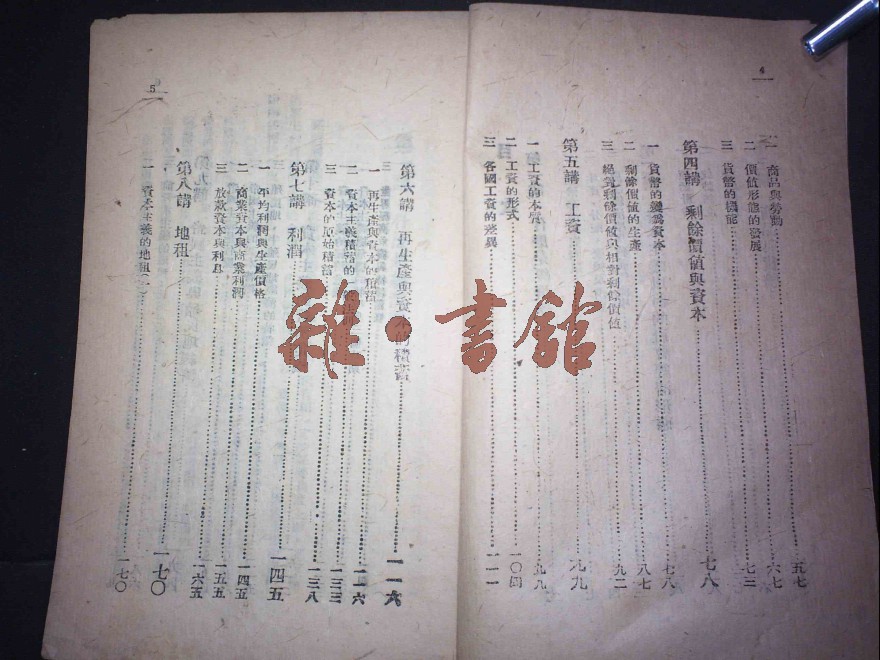 4
一 商品與勞動 五七
二 價值形態的發展 六七
三 貨幣的機能 七三
第四講 剩餘價値與資本 七八
一 貨幣的轉爲資本 七八
二 剩餘價值的生產 八七
三 絕對剩餘價值與相對剩餘價值 九二
第五講 工資 九九
一 工資的本質 九九
二 工資的形式 一〇四
三 各國工資的差異 一一一
5
第六講 再生產與資本的積蓄 一一六
一 再生產與資本的積蓄 一一六
二 資本主義積蓄的 一三三
三 資本的原始積蓄 一三八
第七講 利潤 一四五
一 平均利潤與生產價格 一四五
二 商業資本與商業利潤 一五五
三 放款資本與利息 一六五
第八講 地租 一七〇
一 資本主義的地租(一) 一七〇
雜·書館